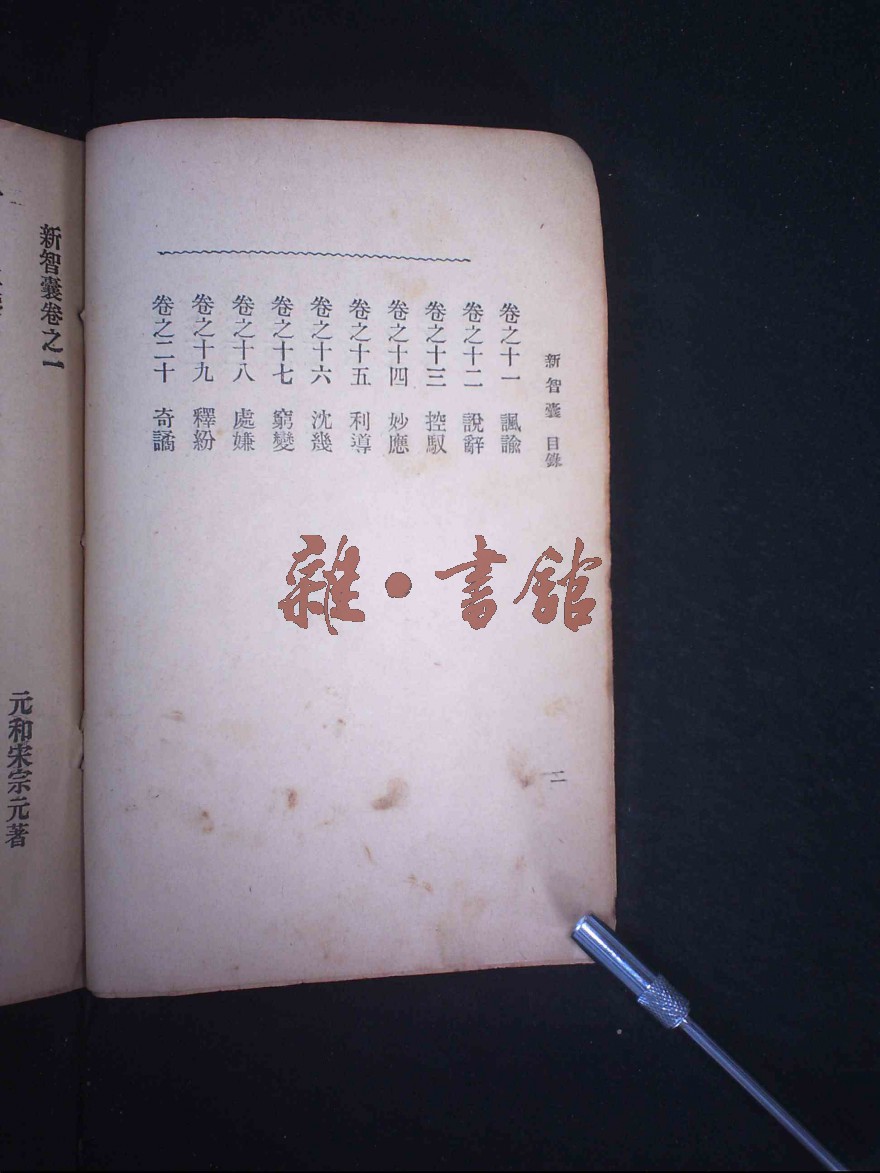 新智囊 目錄
卷之十一 諷諭
卷之十二 說辭
卷之十三 控馭
卷之十四 妙應
卷之十五 利導
卷之十六 沈幾
卷之十七 窮變
卷之十八 處嫌
卷之十九 釋紛
卷之二十 奇譎
二
新智囊卷之一
元和宋宗元著
雜·書館